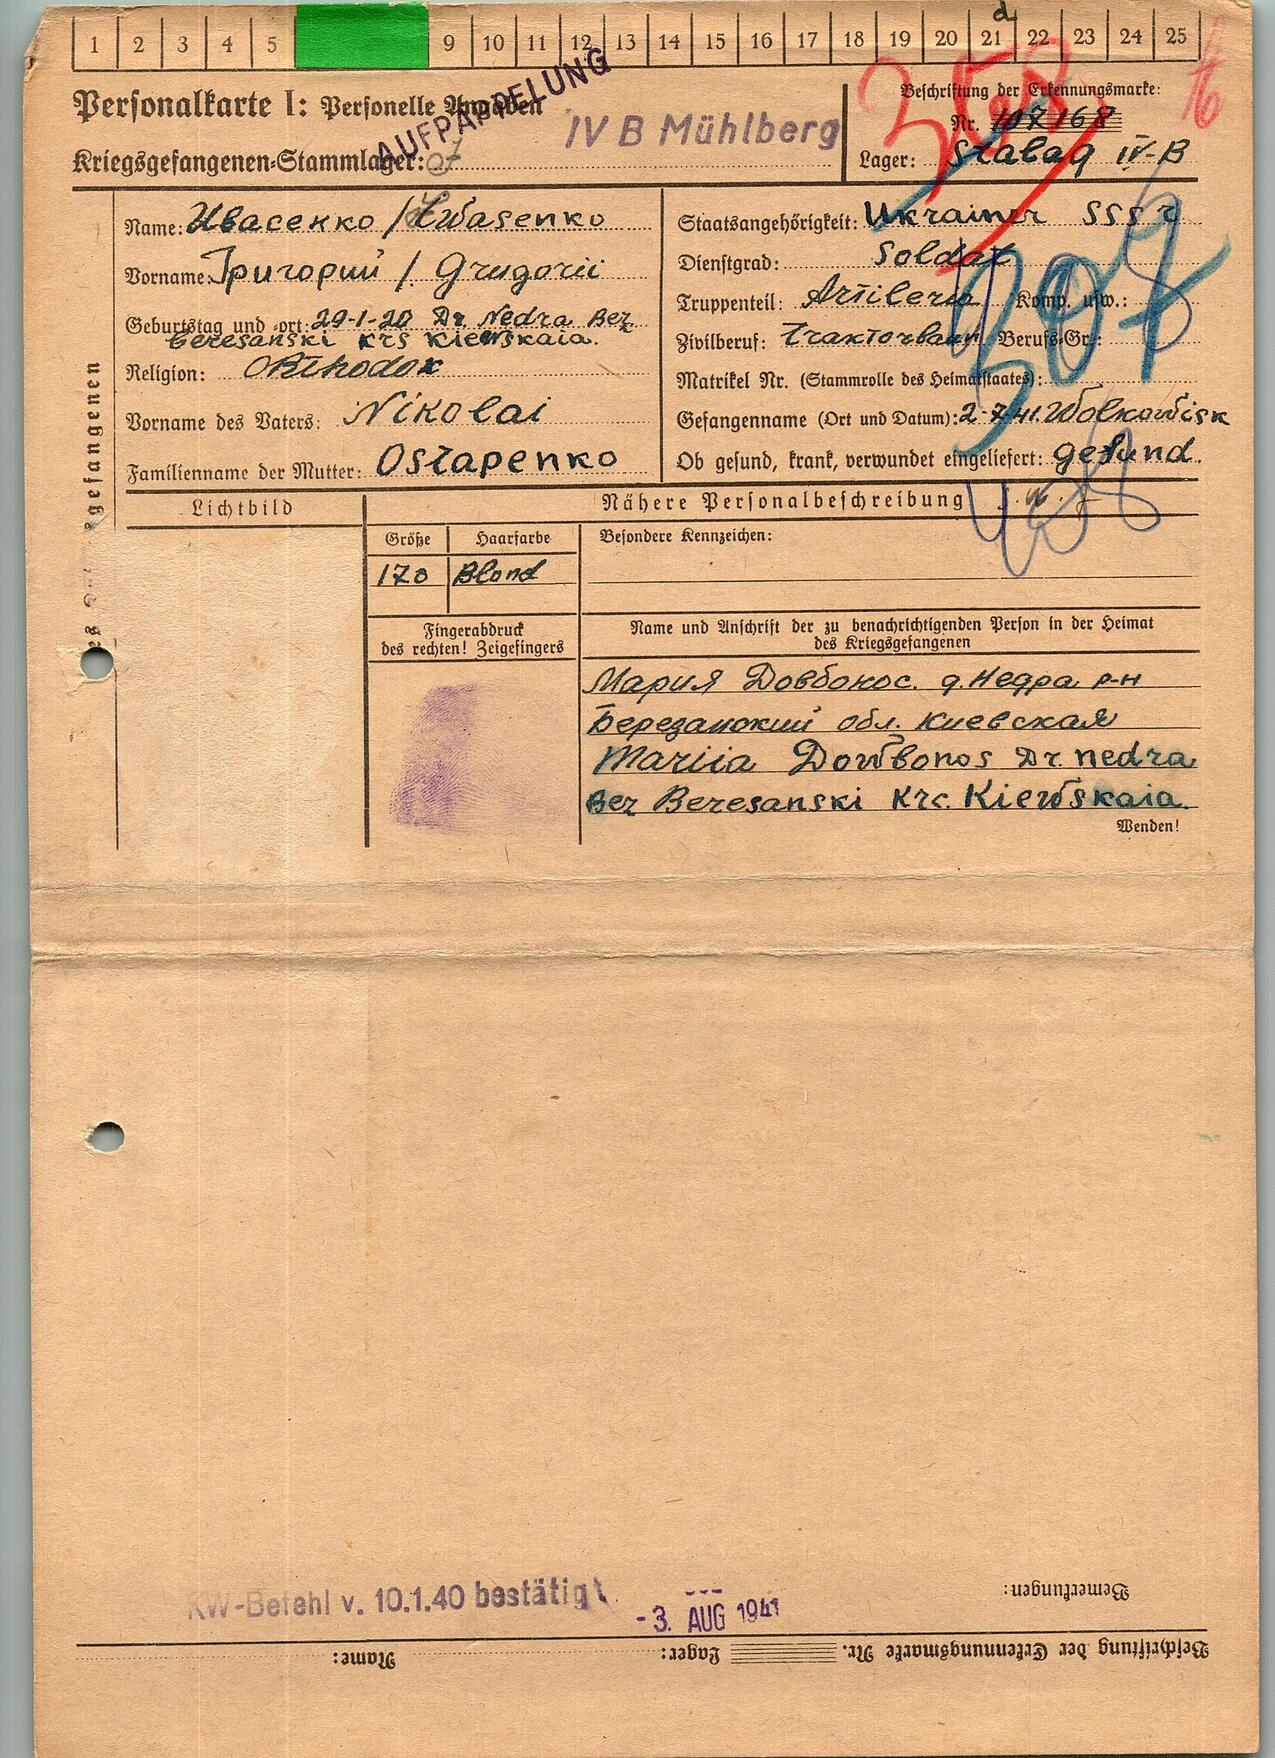 1 2 3 4 5 9 10 11 12 13 14 15 16 17 18 19 20 21 22 23 24 25
Personalkarte I: Personelle Angaben
AUFPÄPPELUNG
Kriegsgefangenen-Stammlager: IV B Mühlberg
Beschriftung der Erkennungsmarke:
Nr. 107168
Lager: Stalag IV-B
Name: Ивасенко / Iwasenko
Vorname: Григорий / Grugorii
Geburtstag und -ort: 29-1-20 Dr. Nedra Bez
Beresanski Krs Kiewskaia.
Religion: Orthodox
Vorname des Vaters: Nikolai
Familienname der Mutter: Ostapenko
Staatsangehörigkeit: Ukrainer SSSR
Dienstgrad: Soldat
Truppenteil: Artilerie Komp. usw.:
Zivilberuf: Berufs-Gr.:
Matrikel Nr. (Stammrolle des Heimatstaates):
Gefangenname (Ort und Datum): 2-7-41. Wolkowisk
Ob gesund, krank, verwundet eingeliefert: gesund.
307
Lichtbild
Nähere Personalbeschreibung
Größe Haarfarbe Besondere Kennzeichen:
170 Blond
Fingerabdruck
des rechten! Zeigefingers
Name und Anschrift der zu benachrichtigenden Person in der Heimat
des Kriegsgefangenen
Мария Довбонос. д. Недра р-н
Березанский обл. Киевская
Mariia Dowbonos Dr. nedra
Bez Beresanski Krc. Kiewskaia.
Wenden!
gefangenen
KW-Befehl v. 10.1.40 bestätigt
-3. AUG 1941
Bemerkungen:
Beschriftung der Erkennungsmarke Nr. Lager: Name: